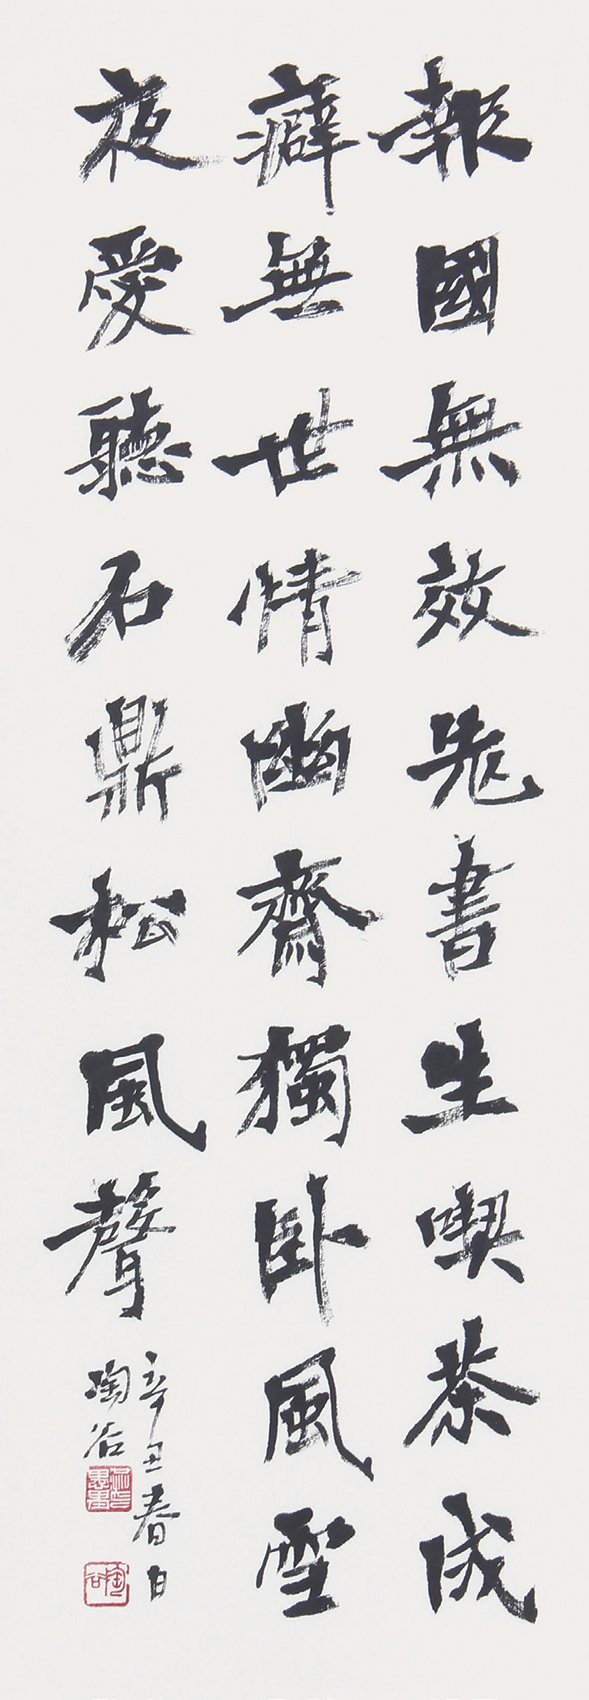 報國無效老書生喫茶成
癖無世情幽齋獨卧風雪
夜愛聽石鼎松風聲
辛丑春日
陶谷